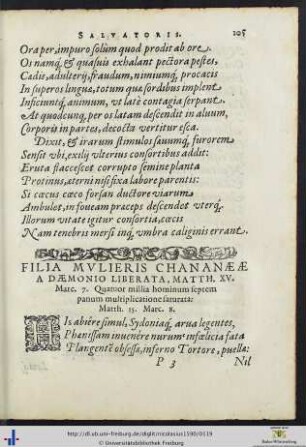 SALVATORIS. 105
Ora per, impuro solùm quod prodit ab ore.
Os namq́; & quæsuis exhalant pectora pestes,
Cædis, adulterij, fraudum, nimiumq́; procacis
In superos linguæ, totum quæ sordibus implent
Inficiuntq́; animum, vt latè contagia serpant.
At quodcunq; per os latam descendit in aluum,
Corporis in partes, decocta vertitur esca.
Dixit, & irarum stimulos sæuumq́; furorem
Sensit vbi, exilij vlterius consortibus addit:
Eruta flaccescet corrupto semine planta
Protinus, æterni nisi fixa labore parentis:
Si cæcus cæco forsan ductore viarum
Ambulet, in foueam præceps descendet vterq́;
Illorum vitate igitur consortia, cæcis
Nam tenebris mersi inq́; vmbra caliginis errant.
FILIA MVLIERIS CHANANÆÆ
A DÆMONIO LIBERATA, MATTH. XV.
Marc. 7. Quatuor millia hominum septem
panum multiplicatione saturata:
Matth. 15. Marc. 8.
His abiêre simul, Sydoniaq́; arua legentes,
Phœnissam inuenêre nurum infœlicia fata
Plangentẽ obsessæ, inferno Tortore, puellæ:
P 3 Nil
http://dl.ub.uni-freiburg.de/diglit/nicolaius1590/0119